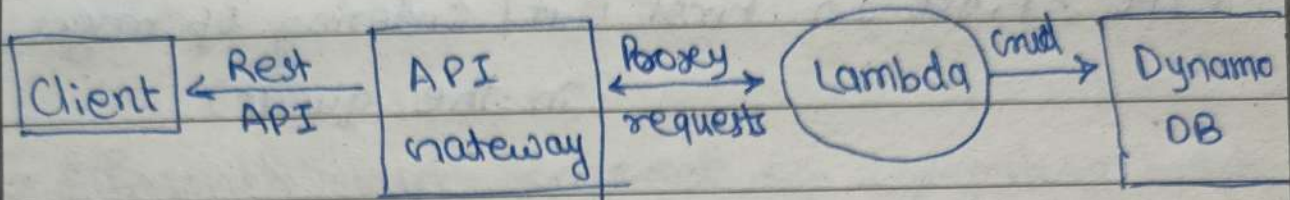 Client
Rest
API
API
Gateway
Proxy
requests
Lambda
Crud
Dynamo
DB